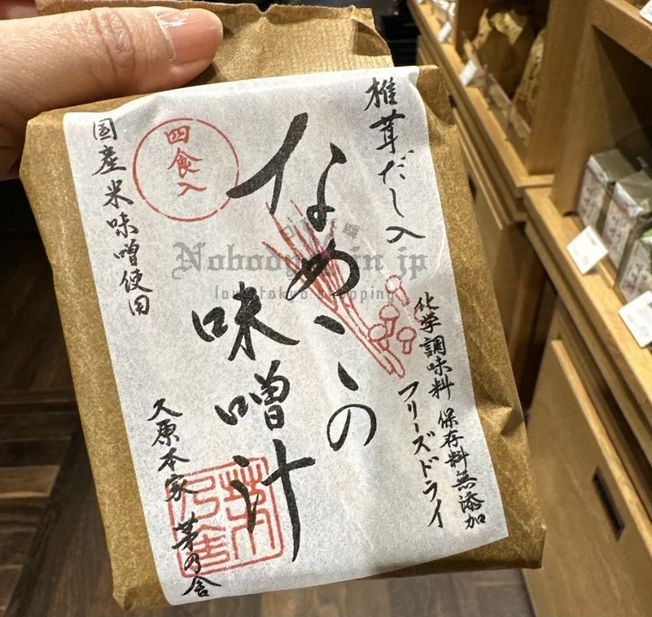 椎茸だし入
なめこの
味噌汁
四食入
国産米味噌使用
化学調味料 保存料無添加
フリーズドライ
久原本家 茅乃舎
茅乃舎
Nobody in jp